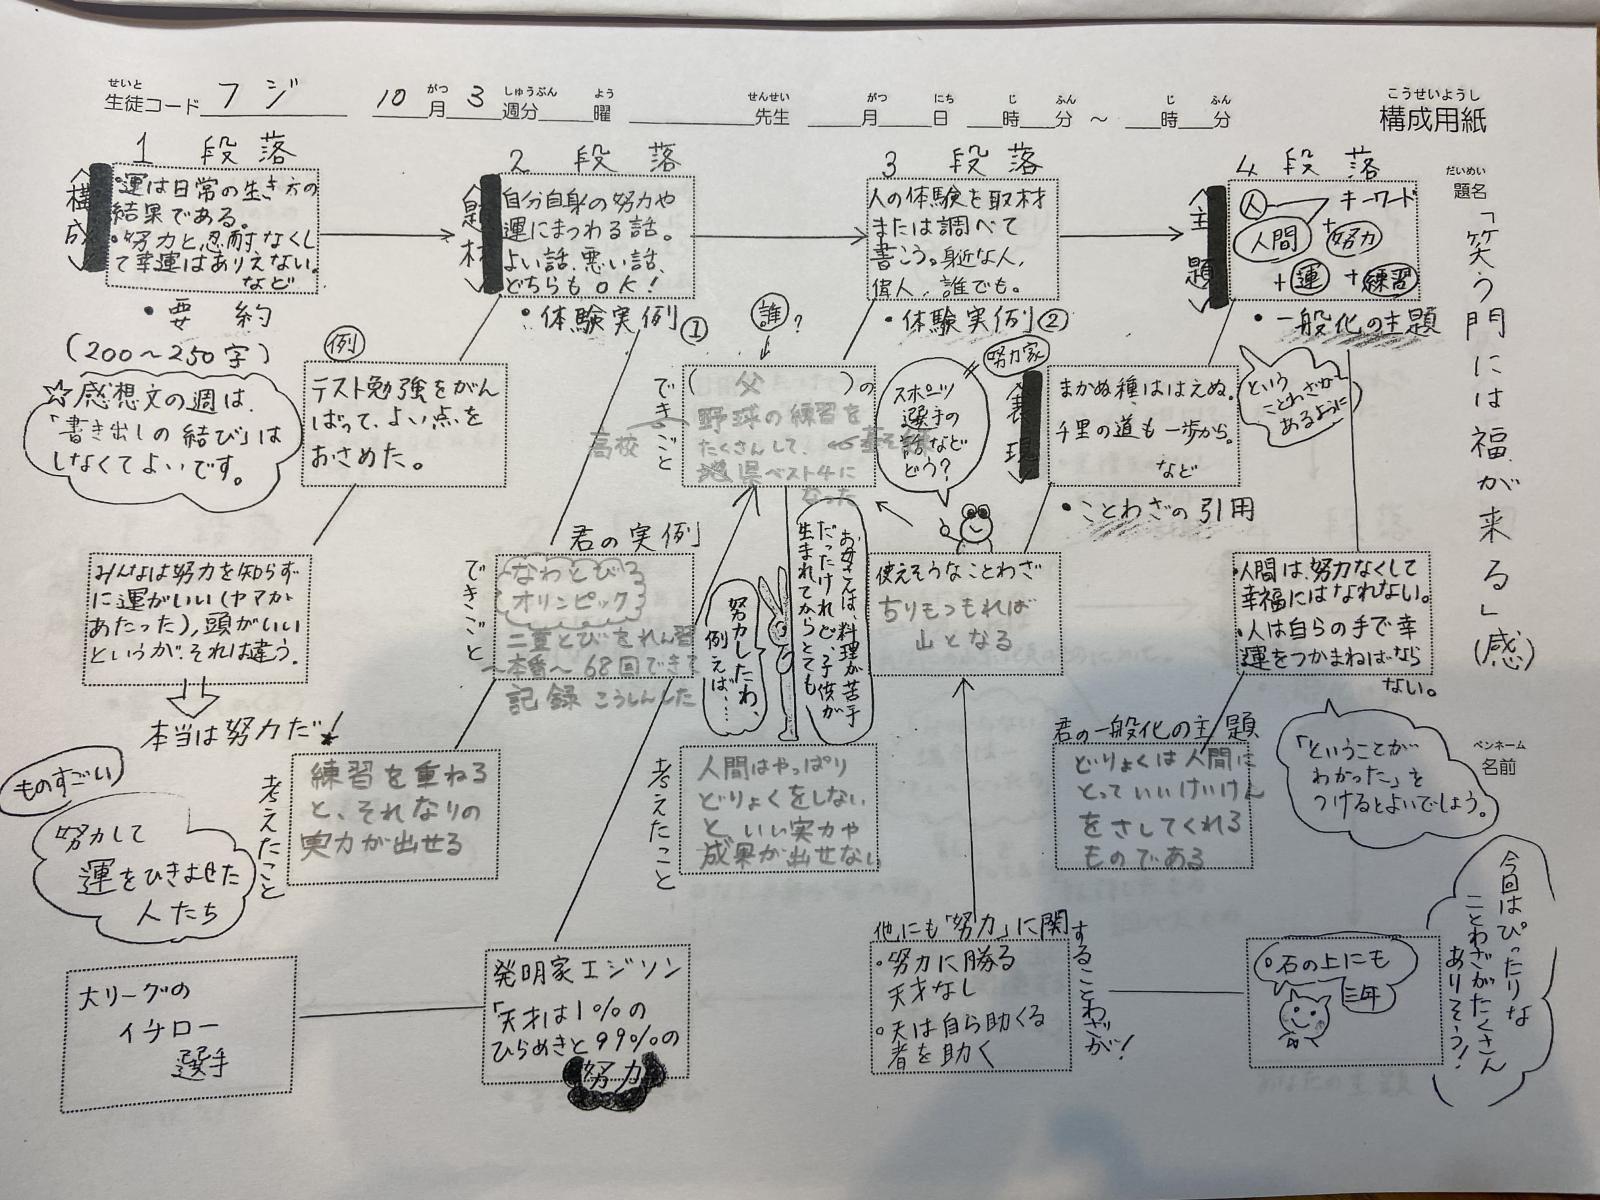 せいと
生徒コード フジ
10月 3週分 曜
がつ しゅうぶん よう
せんせい
先生
がつ にち じ ふん じ ふん
月 日 時 分 ～ 時 分
こうせいようし
構成用紙
だいめい
題名
「笑う門には福が来る」(感)
ペンネーム
名前
1 段落
〈構成〉
・運は日常の生き方の
結果である。
・努力と忍耐なくし
て幸運はありえない。
など
・要約
(200～250字)
☆感想文の週は、
「書き出しの結び」は
しなくてよいです。
2 段落
〈題材〉
自分自身の努力や
運にまつわる話。
よい話、悪い話、
どちらもOK!
・体験実例①
例
テスト勉強をがん
ばって、よい点を
おさめた。
みんなは努力を知らず
に運がいい(ヤマが
あたった),頭がいい
というが、それは違う。
本当は努力だ!
君の実例
できごと
なわとび
オリンピック
二重とびをれん習
～本番～68回できて
記録こうしんした
考えたこと
練習を重ねる
と、それなりの
実力が出せる
ものすごい
努力して
運をひきよせた
人たち
大リーグの
イチロー
選手
発明家エジソン
「天才は1%の
ひらめきと99%の
努力
3 段落
人の体験を取材
または調べて
書こう。身近な人,
偉人、誰でも。
・体験実例②
誰?
できごと
(父)の
野球の練習を
高校
たくさんして、
県ベスト4に
なった
スポーツ
選手の
話など
どう?
=努力家
努力したわ、
例えば、……
お母さんは、料理が苦手
だったけれど、子供が
生まれてからとても
考えたこと
人間はやっぱり
どりょくをしない
と、いい実力や
成果が出せない
4 段落
〈主題〉
人 キーワード
人間+努力
+運+練習
・一般化の主題
ということわざが
あるように
〈表現〉
まかぬ種ははえぬ。
千里の道も一歩から。
など
・ことわざの引用
使えそうなことわざ
ちりもつもれば
山となる
・人間は、努力なくして
幸福にはなれない。
・人は自らの手で幸
運をつかまねばなら
ない。
君の一般化の主題
どりょくは人間に
とっていいけいけん
をさしてくれる
ものである
「ということが
わかった」を
つけるとよいでしょう。
他にも「努力」に関することわざが!
・努力に勝る
天才なし
・天は自ら助くる
者を助く
石の上にも
三年
今回はぴったりな
ことわざがたくさん
ありそう!